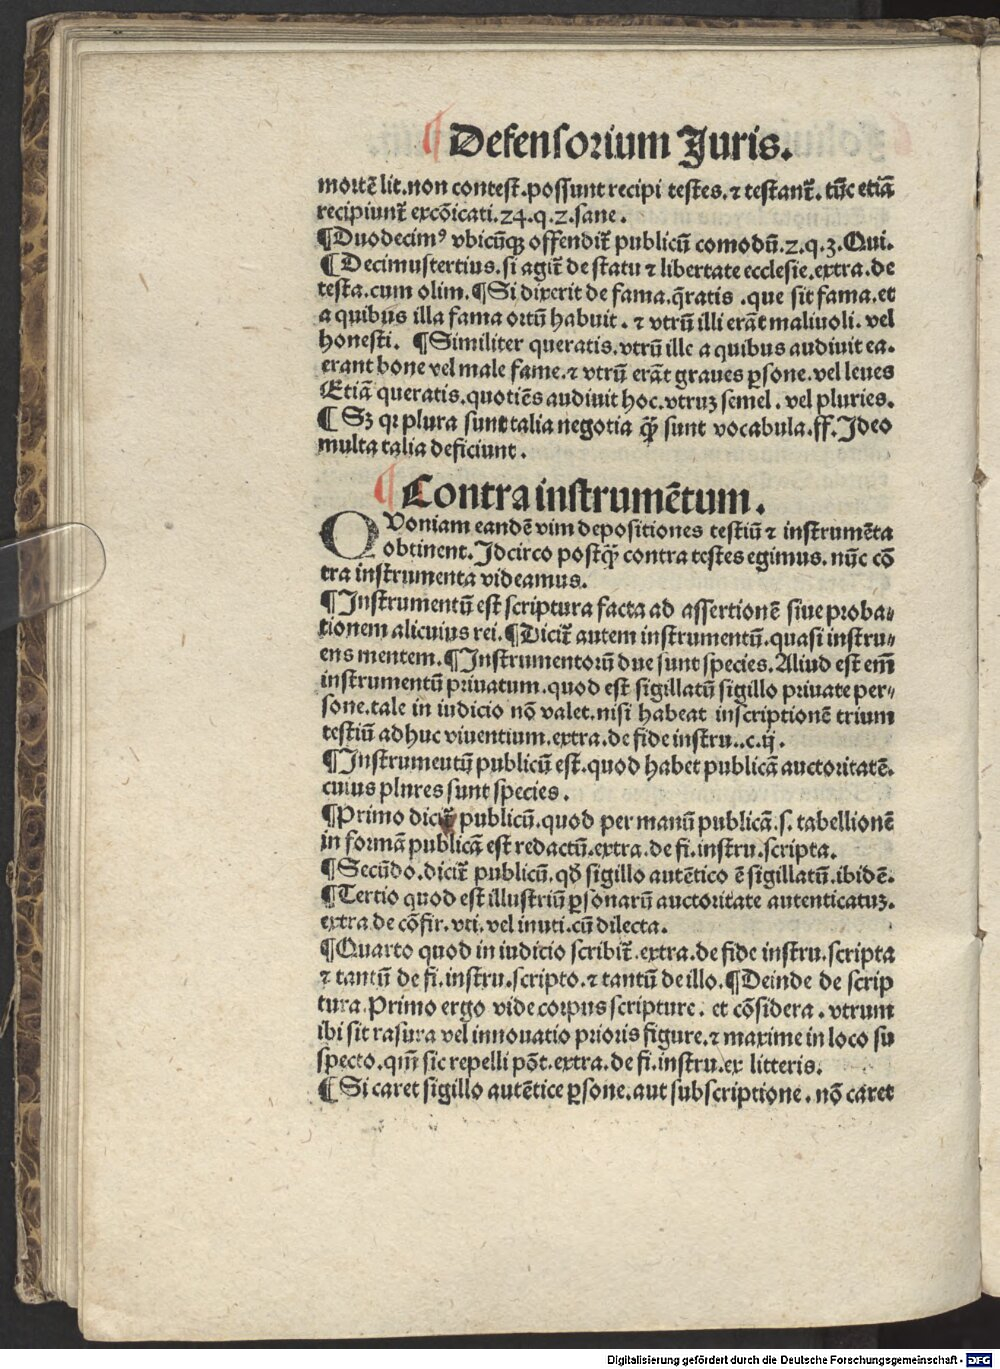 ¶ Defensorium Juris.
mortē lit. non contest̄. possunt recipi testes. ⁊ testant᷑. tūc etiā
recipiunt᷑ excōicati. 24. q. 2. sane.
¶ Duodecimꝰ vbicūqꝫ offendit᷑ publicū comodū. 2. q. 3. Qui.
¶ Decimustertius. si agit᷑ de statu ⁊ libertate ecclesie. extra. de
testa. cum olim. ¶ Si dixerit de fama. q̄ratis. que sit fama. et
a quibus illa fama ortū habuit. ⁊ vtrū illi erāt maliuoli. vel
honesti. ¶ Similiter queratis. vtrū ille a quibus audiuit ea.
erant bone vel male fame. ⁊ vtrū erāt graues ꝑsone. vel leues
Etiā queratis. quotiēs audiuit hoc. vtruꝫ semel. vel pluries.
¶ Sꝫ qꝛ plura sunt talia negotia q̄ꝫ sunt vocabula. ff. Ideo
multa talia deficiunt.
¶ Contra instrumētum.
QVoniam eandē vim depositiones testiū ⁊ instrumēta
obtinent. Idcirco postq̄ꝫ contra testes egimus. nūc cō
tra instrumenta videamus.
¶ Instrumentū est scriptura facta ad assertionē siue proba⸗
tionem alicuius rei. ¶ Dicit᷑ autem instrumentū. quasi instru⸗
ens mentem. ¶ Instrumentorū due sunt species. Aliud est em̄
instrumentū priuatum. quod est sigillatū sigillo priuate per⸗
sone. tale in iudicio nō valet. nisi habeat inscriptionē trium
testiū adhuc viuentium. extra. de fide instru.. c. ij.
¶ Instrumentū publicū est. quod habet publicā auctoritatē.
cuius plures sunt species.
¶ Primo dicit᷑ publicū. quod per manū publicā. s. tabellionē
in formā publicā est redactū. extra. de fi. instru. scripta.
¶ Secūdo. dicit᷑ publicū. qd̄ sigillo autētico ē sigillatū. ibidē.
¶ Tertio quod est illustriū ꝑsonarū auctoritate autenticatuꝫ.
extra de cōfir. vti. vel inuti. cū dilecta.
¶ Quarto quod in iudicio scribit᷑. extra. de fide instru. scripta
⁊ tantū de fi. instru. scripto. ⁊ tantū de illo. ¶ Deinde de scrip
tura. Primo ergo vide corpus scripture. et cōsidera. vtrum
ibi sit rasura vel innouatio prioris figure. ⁊ maxime in loco su
specto. qm̄ sic repelli pōt. extra. de fi. instru. ex litteris.
¶ Si caret sigillo autētice ꝑsone. aut subscriptione. nō caret
Digitalisierung gefördert durch die Deutsche Forschungsgemeinschaft - DFG